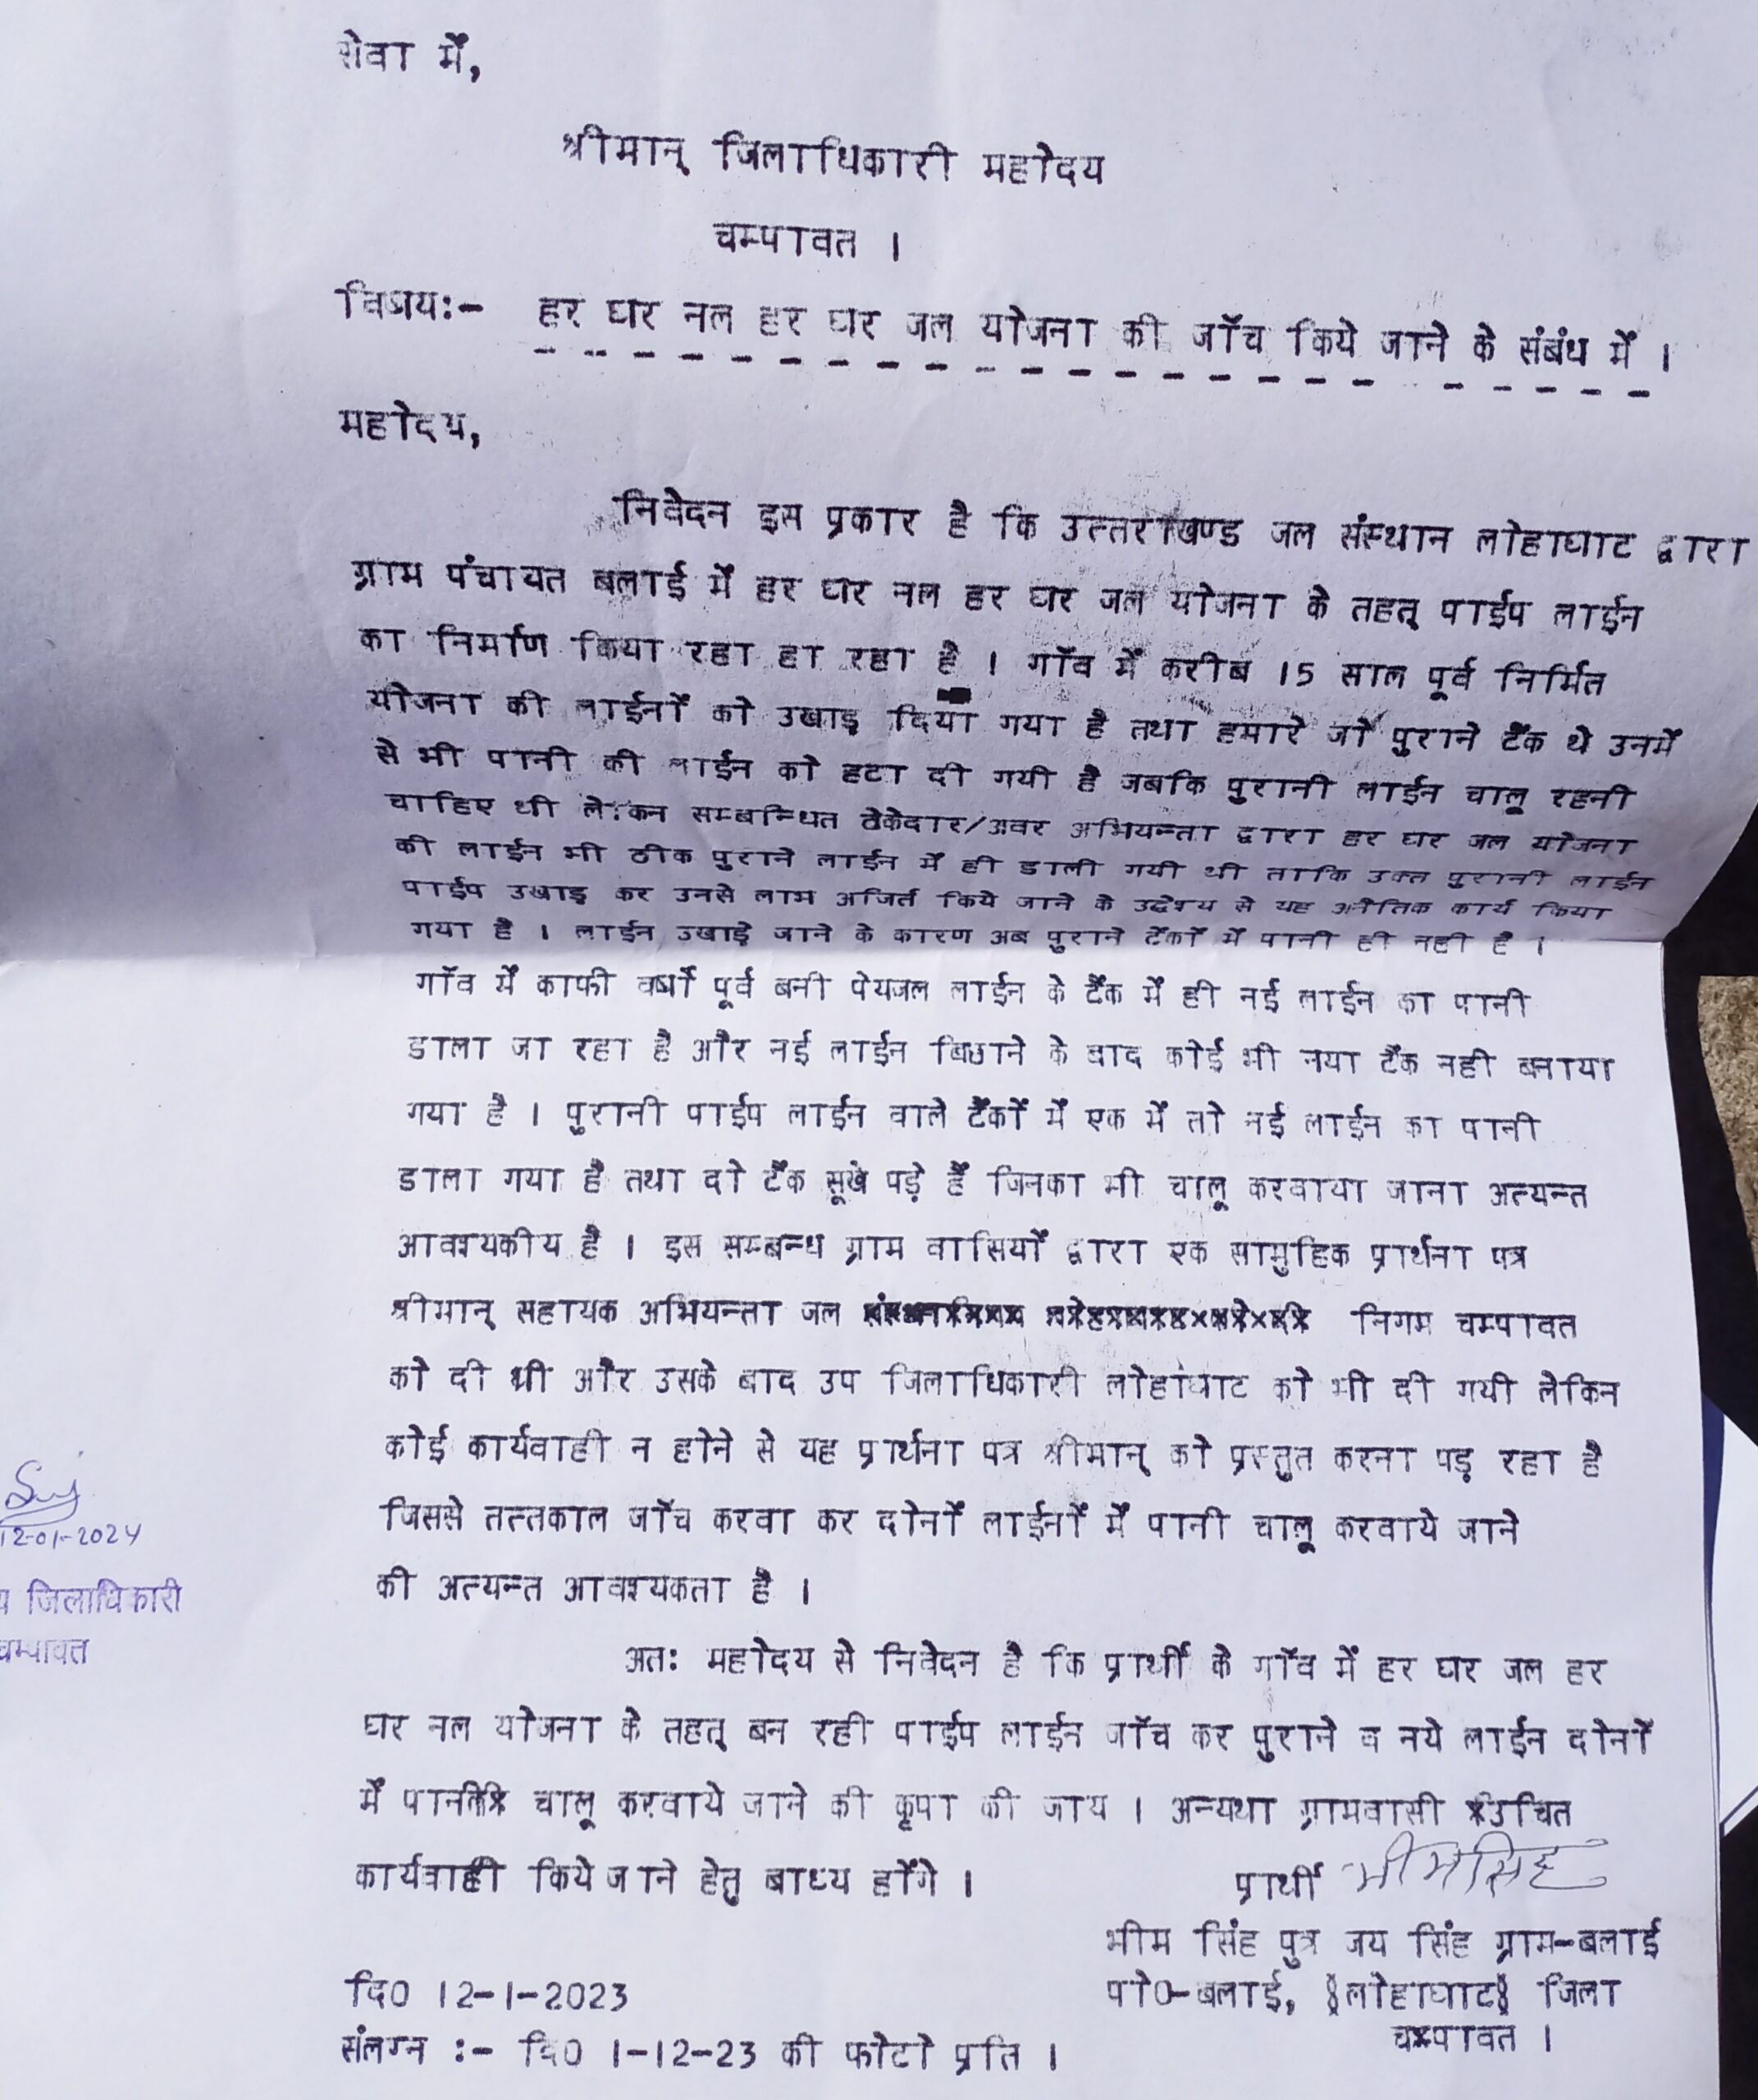 सेवा में,
श्रीमान् जिलाधिकारी महोदय
चम्पावत ।
विषय:- हर घर नल हर घर जल योजना की जाँच किये जाने के संबंध में ।
महोदय,
निवेदन इस प्रकार है कि उत्तराखण्ड जल संस्थान लोहाघाट द्वारा
ग्राम पंचायत बलाई में हर घर नल हर घर जल योजना के तहत् पाईप लाईन
का निर्माण किया रहा हा रहा है । गाँव में करीब 15 साल पूर्व निर्मित
योजना की लाईनों को उखाड़ दिया गया है तथा हमारे जो पुराने टैंक थे उनमें
से भी पानी की लाईन को हटा दी गयी है जबकि पुरानी लाईन चालू रहनी
चाहिए थी लेकिन सम्बन्धित ठेकेदार/अवर अभियन्ता द्वारा हर घर जल योजना
की लाईन भी ठीक पुराने लाईन में ही डाली गयी थी ताकि उक्त पुरानी लाईन
पाईप उखाड़ कर उनसे लाभ अजिर्त किये जाने के उद्देश्य से यह कार्य किया
गया है । लाईन उखाड़े जाने के कारण अब पुराने टैंकों में पानी ही नही है ।
गाँव में काफी वर्षों पूर्व बनी पेयजल लाईन के टैंक में ही नई लाईन का पानी
डाला जा रहा है और नई लाईन बिछाने के बाद कोई भी नया टैंक नही बनाया
गया है । पुरानी पाईप लाईन वाले टैंकों में एक में तो नई लाईन का पानी
डाला गया है तथा दो टैंक सूखे पड़े हैं जिनका भी चालू करवाया जाना अत्यन्त
आवश्यकीय है । इस सम्बन्ध ग्राम वासियों द्वारा एक सामुहिक प्रार्थना पत्र
श्रीमान् सहायक अभियन्ता जल निगम चम्पावत
को दी थी और उसके बाद उप जिलाधिकारी लोहाघाट को भी दी गयी लेकिन
कोई कार्यवाही न होने से यह प्रार्थना पत्र श्रीमान् को प्रस्तुत करना पड़ रहा है
जिससे तत्तकाल जाँच करवा कर दोनों लाईनों में पानी चालू करवाये जाने
की अत्यन्त आवश्यकता है ।
अत: महोदय से निवेदन है कि प्रार्थी के गाँव में हर घर जल हर
घर नल योजना के तहत् बन रही पाईप लाईन जाँच कर पुराने व नये लाईन दोनों
में चालू करवाये जाने की कृपा की जाय । अन्यथा ग्रामवासी उचित
कार्यवाही किये जाने हेतु बाध्य होंगे ।
प्रार्थी भीमसिंह
भीम सिंह पुत्र जय सिंह ग्राम-बलाई
पो0-बलाई, (लोहाघाट) जिला
चम्पावत ।
दि0 12-1-2023
संलग्न :- दि0 1-12-23 की फोटो प्रति ।
12-01-2024
जिलाधिकारी
चम्पावत